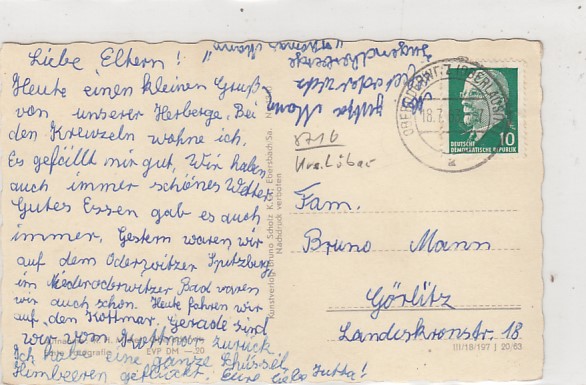 Liebe Eltern!
Heute einen kleinen Gruß
von unserer Herberge. Bei
den Kreuzeln wohne ich.
Es gefällt mir gut. Wir haben
auch immer schönes Wetter.
Gutes Essen gab es auch
immer. Gestern waren wir
auf dem Oderwitzer Spitzberg
im Niederoderwitzer Bad waren
wir auch schon. Heute fahren wir
auf den Kottmar. Gerade sind
wir vom Kottmar zurück.
Ich habe eine ganze Schüssel
Himbeeren gepflückt. Eure liebe Jutta!
Jutta Mann
Oderwitz
Jugendherberge
8716
Krs. Löbau
Kunstverlag Bruno Scholz K.G. Ebersbach/Sa.
Nachdruck verboten
18.7.
10
DEUTSCHE
DEMOKRATISCHE REPUBLIK
Fam.
Bruno Mann
Görlitz
Landeskronstr. 18
EVP DM —20
III/18/197 J 20/63